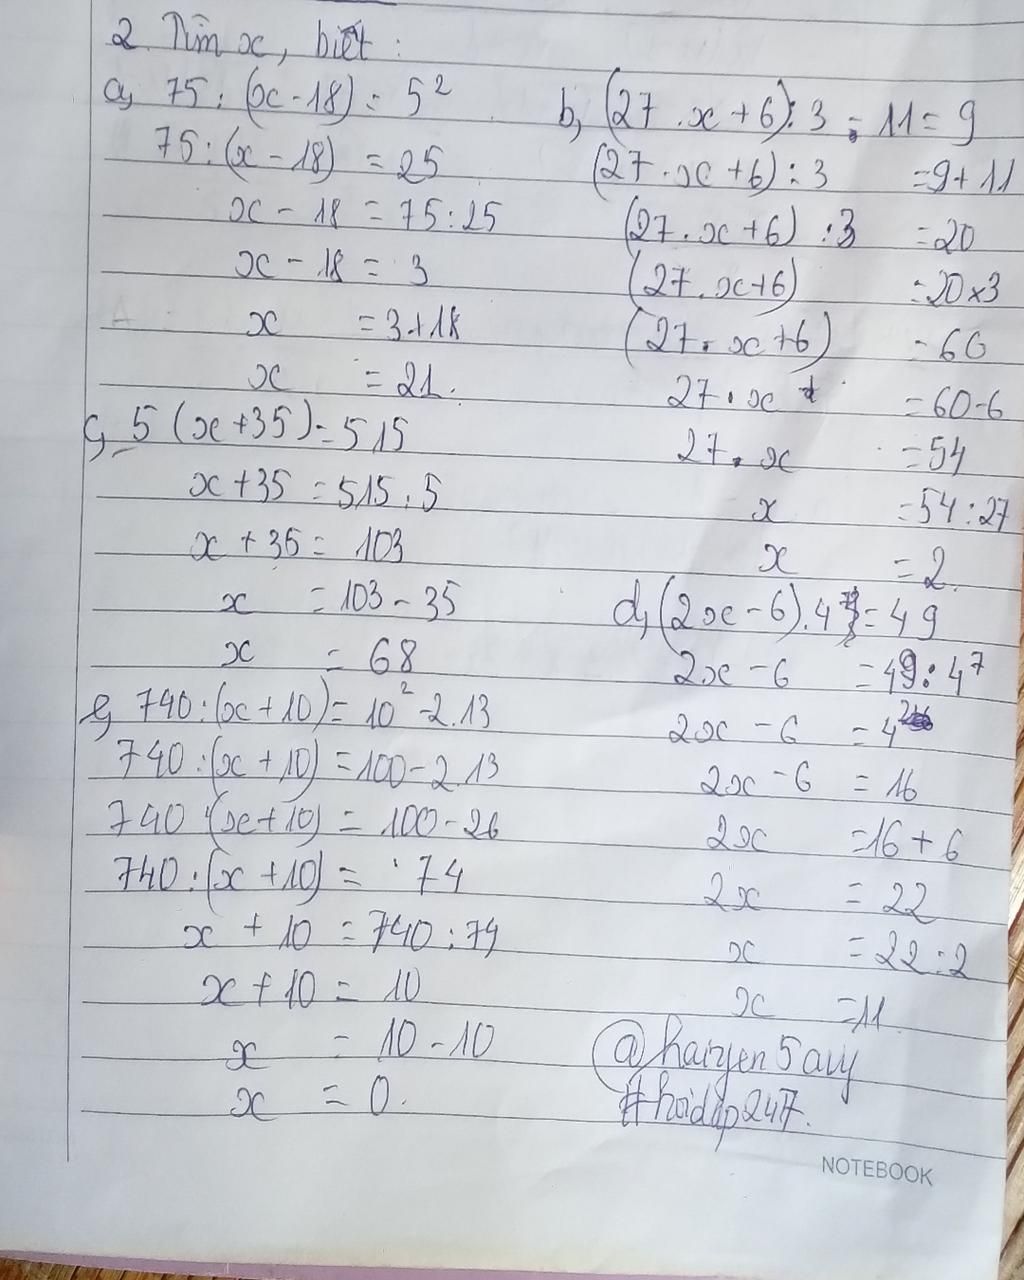 2. Tìm x, biết:
a, 75 : (x - 18) = 5²
75 : (x - 18) = 25
x - 18 = 75 : 25
x - 18 = 3
x = 3 + 18
x = 21.
b, (27 . x + 6) : 3 - 11 = 9
(27 . x + 6) : 3 = 9 + 11
(27 . x + 6) : 3 = 20
(27 . x + 6) = 20 x 3
(27 . x + 6) = 60
27 . x = 60 - 6
27 . x = 54
x = 54 : 27
x = 2.
c, 5 (x + 35) = 515
x + 35 = 515 : 5
x + 35 = 103
x = 103 - 35
x = 68
d, (2x - 6) . 4⁷ = 49
2x - 6 = 49 : 4⁷
2x - 6 = 4²
2x - 6 = 16
2x = 16 + 6
2x = 22
x = 22 : 2
x = 11
e, 740 : (x + 10) = 10² - 2.13
740 : (x + 10) = 100 - 2.13
740 : (x + 10) = 100 - 26
740 : (x + 10) = 74
x + 10 = 740 : 74
x + 10 = 10
x = 10 - 10
x = 0.
@haiyen5avy
#hoidap247.
NOTEBOOK